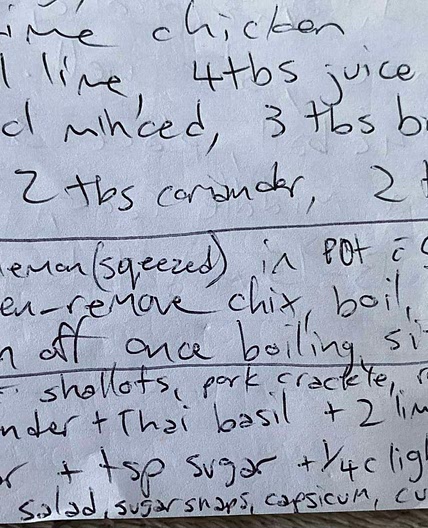 ime chicken
l lime, 4tbs juice
d minced, 3 tbs b
2 tbs coriander, 2 t
lemon (squeezed) in POT c̄
en-remove chix, boil,
n off once boiling, si
shallots, pork crackle, r
nder + Thai basil + 2 lim
r + tsp sugar + 1/4c ligh
salad, sugarsnaps, capsicum, cu